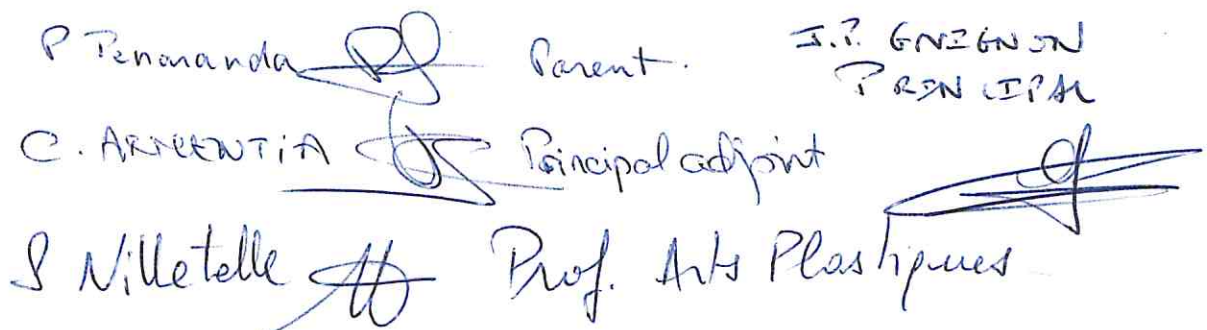 P Penaranda Parent.
J.P. GRIGNON
PRINCIPAL
C. ARMENTIA Principal adjoint
S Villetelle Prof. Arts Plastiques